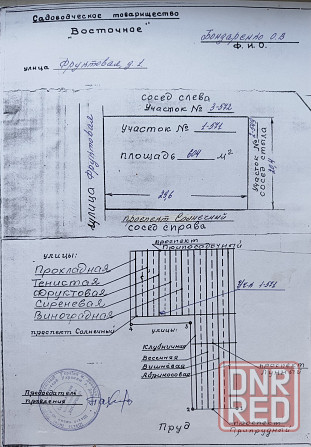 Садоводческое товарищество
"Восточное"
Бондаренко О.В
Ф. И. О.
улица Фруктовая д.1
СОСЕД СЛЕВА
Участок № 3-572
улица Фруктовая
Участок № 1-571
площадь 604 м²
29,6
20,4
Участок №
СОСЕД СТАЛА
проспект Солнечный
СОСЕД СПРАВА
проспект
Приусадебный
улицы:
Прохладная
Тенистая
Фруктовая
Сиреневая
Виноградная
проспект Солнечный
улицы:
Клубничная
Весенняя
Вишневая
Абрикосовая
проспект
проспект
Припрудный
Председатель
правления
Пруд
DNR
RED